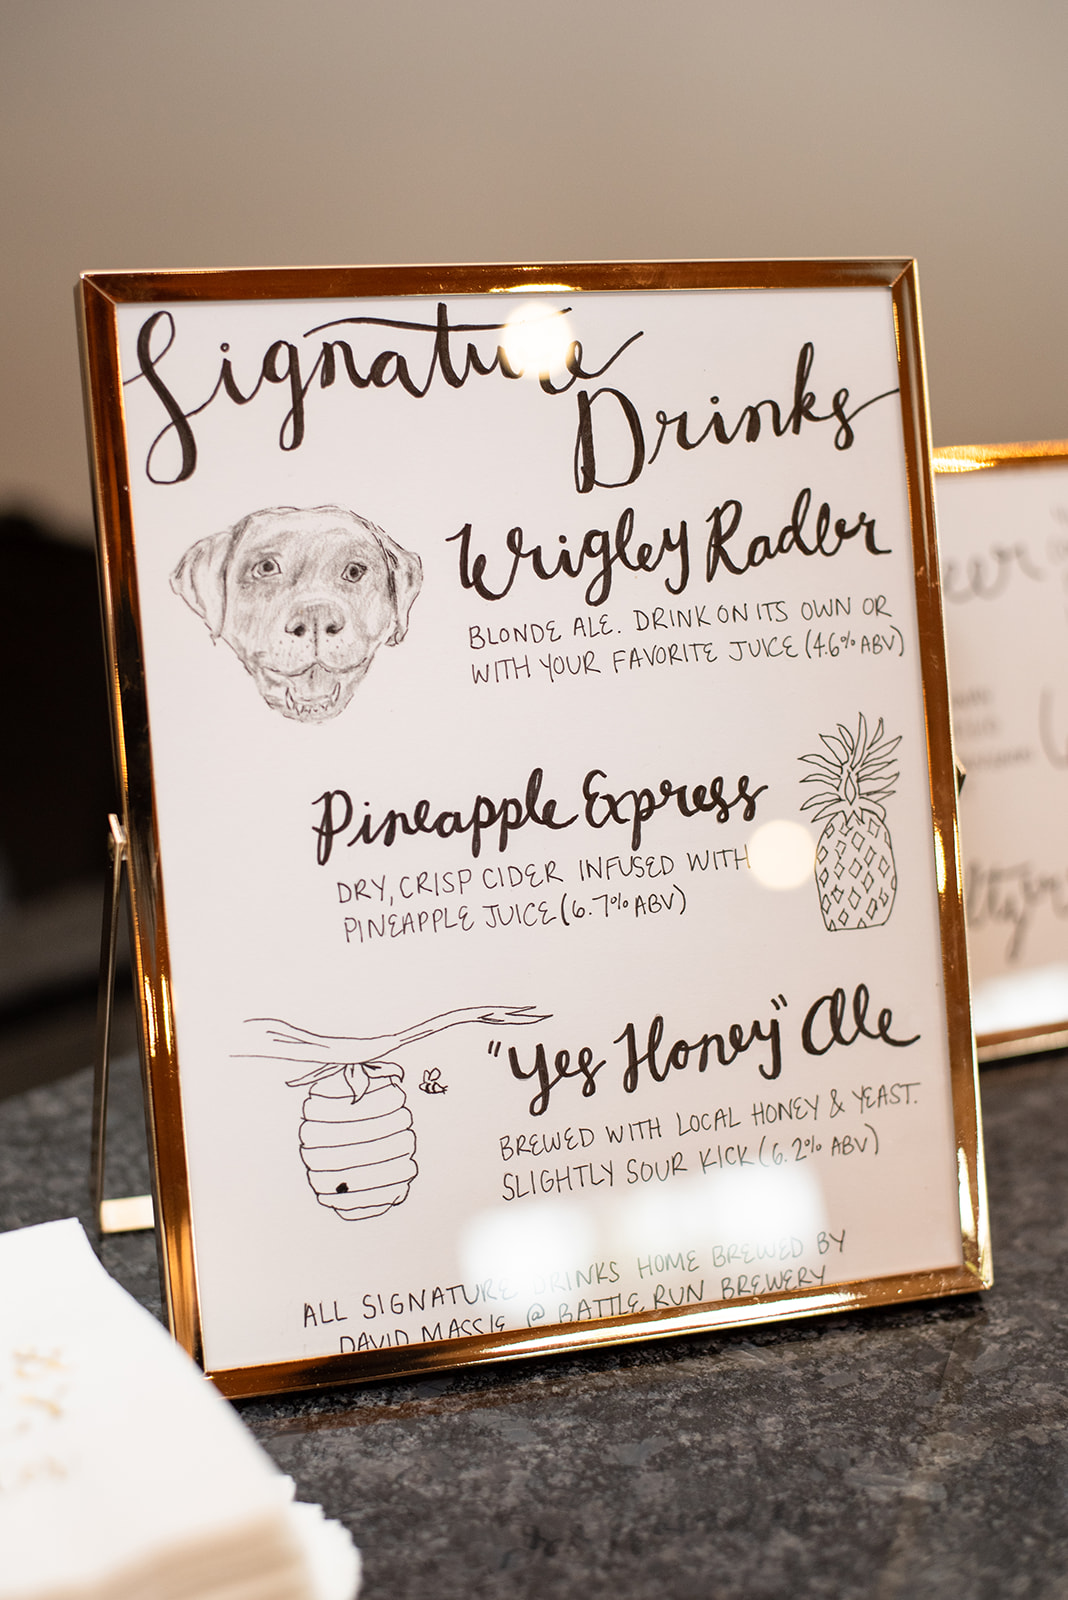 Signature
Drinks
Wrigley Radler
BLONDE ALE. DRINK ON ITS OWN OR
WITH YOUR FAVORITE JUICE (4.6% ABV)
Pineapple Express
DRY, CRISP CIDER INFUSED WITH
PINEAPPLE JUICE (6.7% ABV)
"Yes Honey" Ale
BREWED WITH LOCAL HONEY & YEAST.
SLIGHTLY SOUR KICK (6.2% ABV)
ALL SIGNATURE DRINKS HOME BREWED BY
DAVID MASSIE @ BATTLE RUN BREWERY